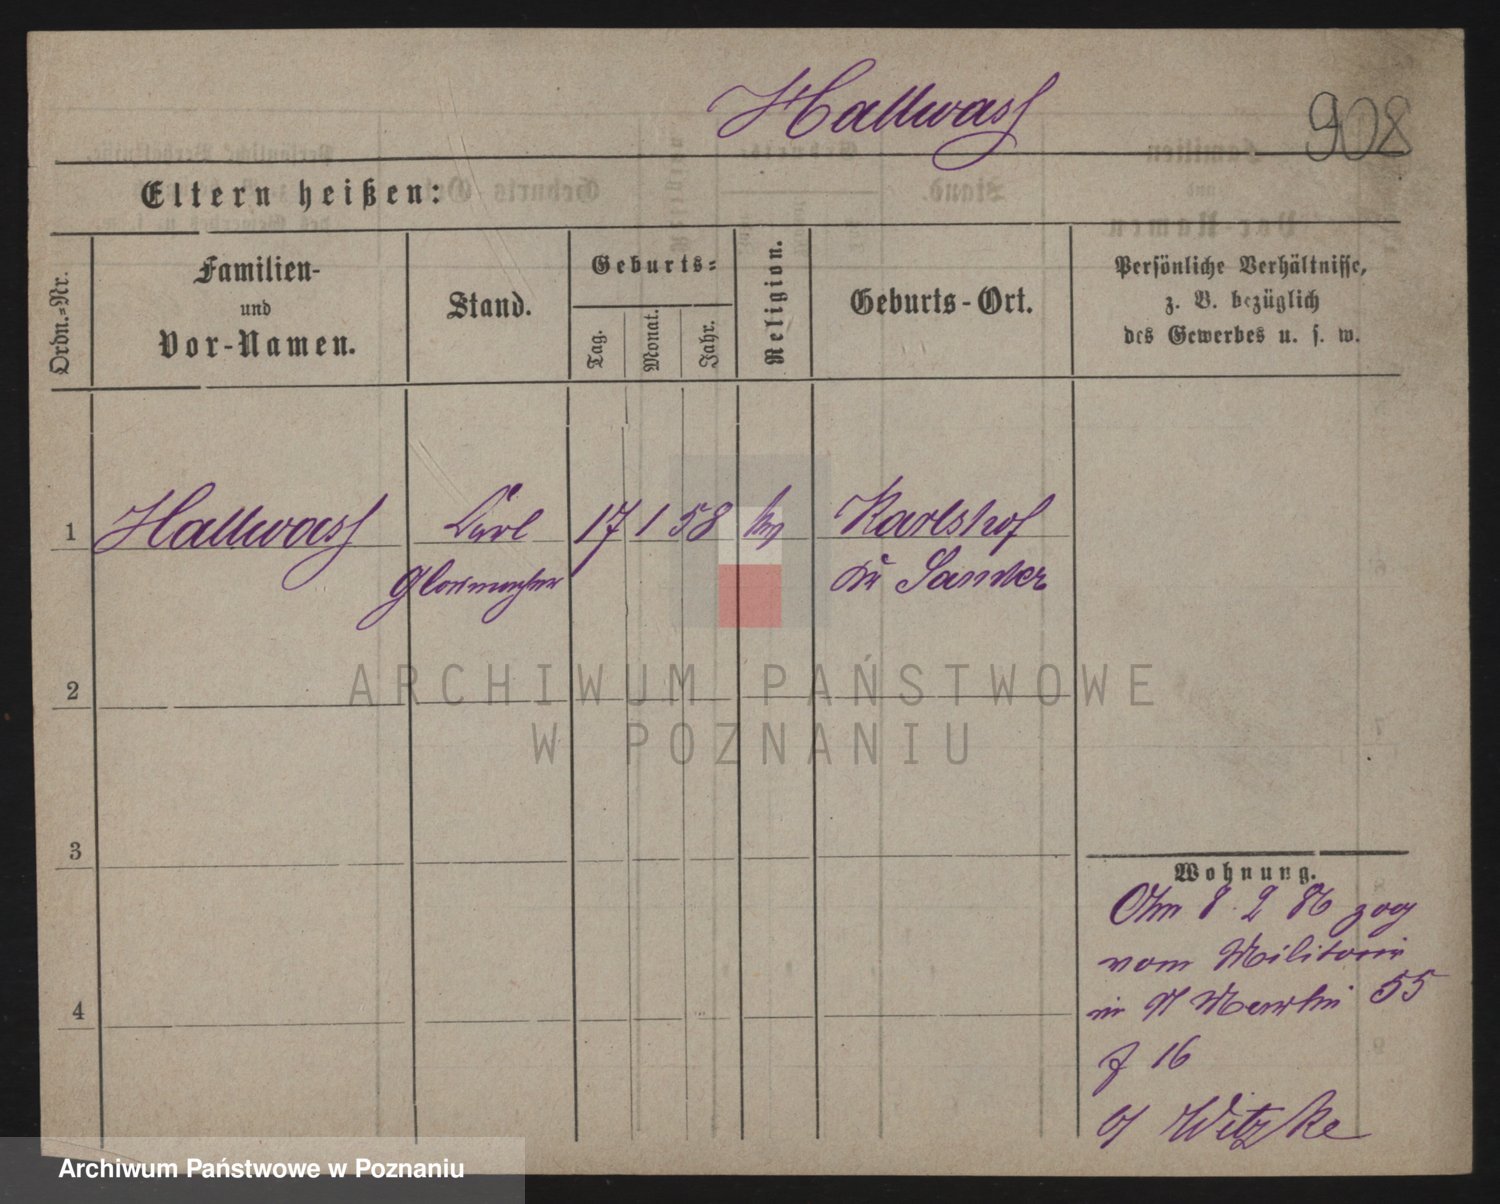 Hallwass
908
Eltern heißen:
Ordn.-Nr.
Familien-
und
Vor-Namen.
Stand.
Geburts-
Tag.
Monat.
Jahr.
Religion.
Geburts-Ort.
Persönliche Verhältnisse,
z. B. bezüglich
des Gewerbes u. s. w.
1 Hallwass Carl 17 1 58 Karlshof
Kr Samter
2
ARCHIWUM PAŃSTWOWE
W POZNANIU
3
4
Wohnung.
8 2 86 zog
vom Militair
in St Martin 55
16
Witzke
Archiwum Państwowe w Poznaniu